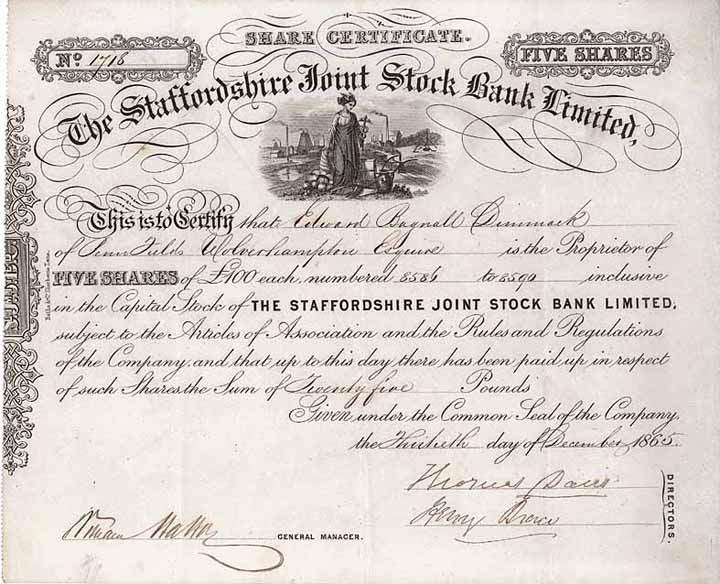 SHARE CERTIFICATE.
No. 1716
FIVE SHARES
The Staffordshire Joint Stock Bank Limited,
This is to Certify that Edward Bagnall Dimmack
of Penn Fields Wolverhampton Esquire is the Proprietor of
FIVE SHARES of £100 each, numbered 8586 to 8590 inclusive
in the Capital Stock of THE STAFFORDSHIRE JOINT STOCK BANK LIMITED,
subject to the Articles of Association and the Rules and Regulations
of the Company, and that up to this day there has been paid up in respect
of such Shares the Sum of Twenty five Pounds
Given under the Common Seal of the Company,
the Thirtieth day of December 1865.
Thomas
Henry
DIRECTORS.
William
GENERAL MANAGER.
LIMITED